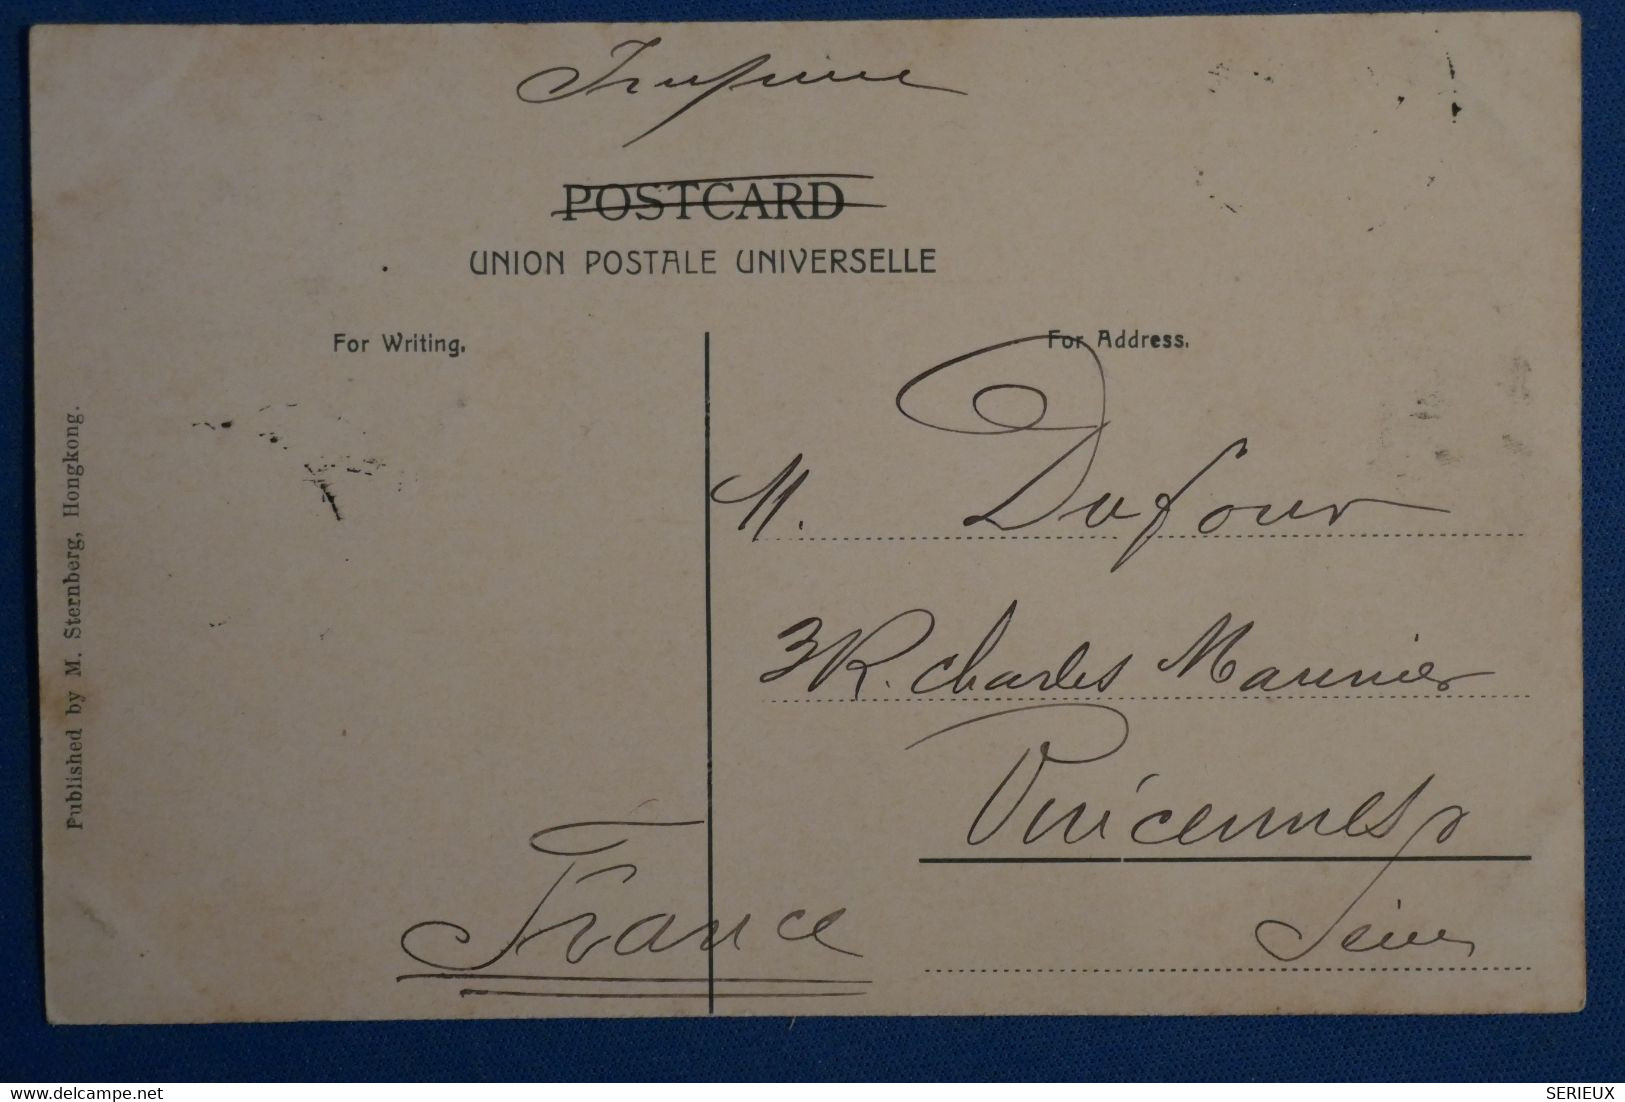 Imprimé
POSTCARD
UNION POSTALE UNIVERSELLE
For Writing.
For Address.
M. Dufour
3 R. Charles Marinier
Vincennes
Seine
France
Published by M. Sternberg, Hongkong.
delcampe.net
SERIEUX